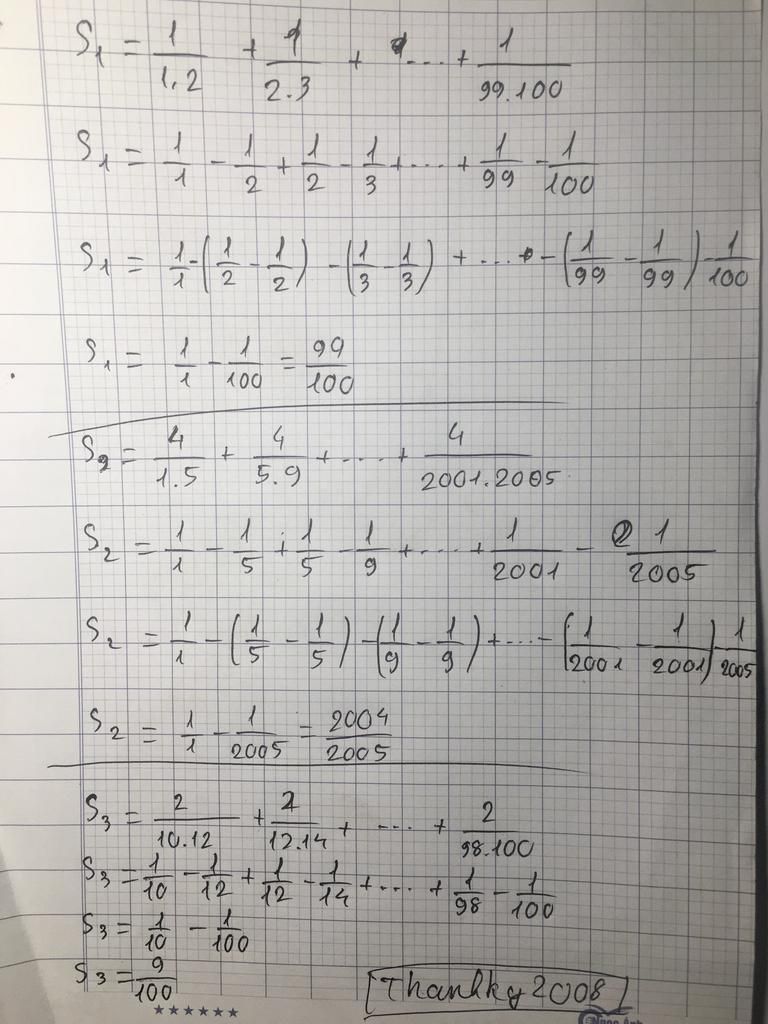 S₁ = 1/1.2 + 1/2.3 + .... + 1/99.100
S₁ = 1/1 - 1/2 + 1/2 - 1/3 + .... + 1/99 - 1/100
S₁ = 1/1 - (1/2 - 1/2) - (1/3 - 1/3) + .... - (1/99 - 1/99) - 1/100
S₁ = 1/1 - 1/100 = 99/100
S₂ = 4/1.5 + 4/5.9 + .... + 4/2001.2005
S₂ = 1/1 - 1/5 + 1/5 - 1/9 + .... + 1/2001 - 1/2005
S₂ = 1/1 - (1/5 - 1/5) - (1/9 - 1/9) + .... - (1/2001 - 1/2001) - 1/2005
S₂ = 1/1 - 1/2005 = 2004/2005
S₃ = 2/10.12 + 2/12.14 + .... + 2/98.100
S₃ = 1/10 - 1/12 + 1/12 - 1/14 + .... + 1/98 - 1/100
S₃ = 1/10 - 1/100
S₃ = 9/100
Thanhky2008